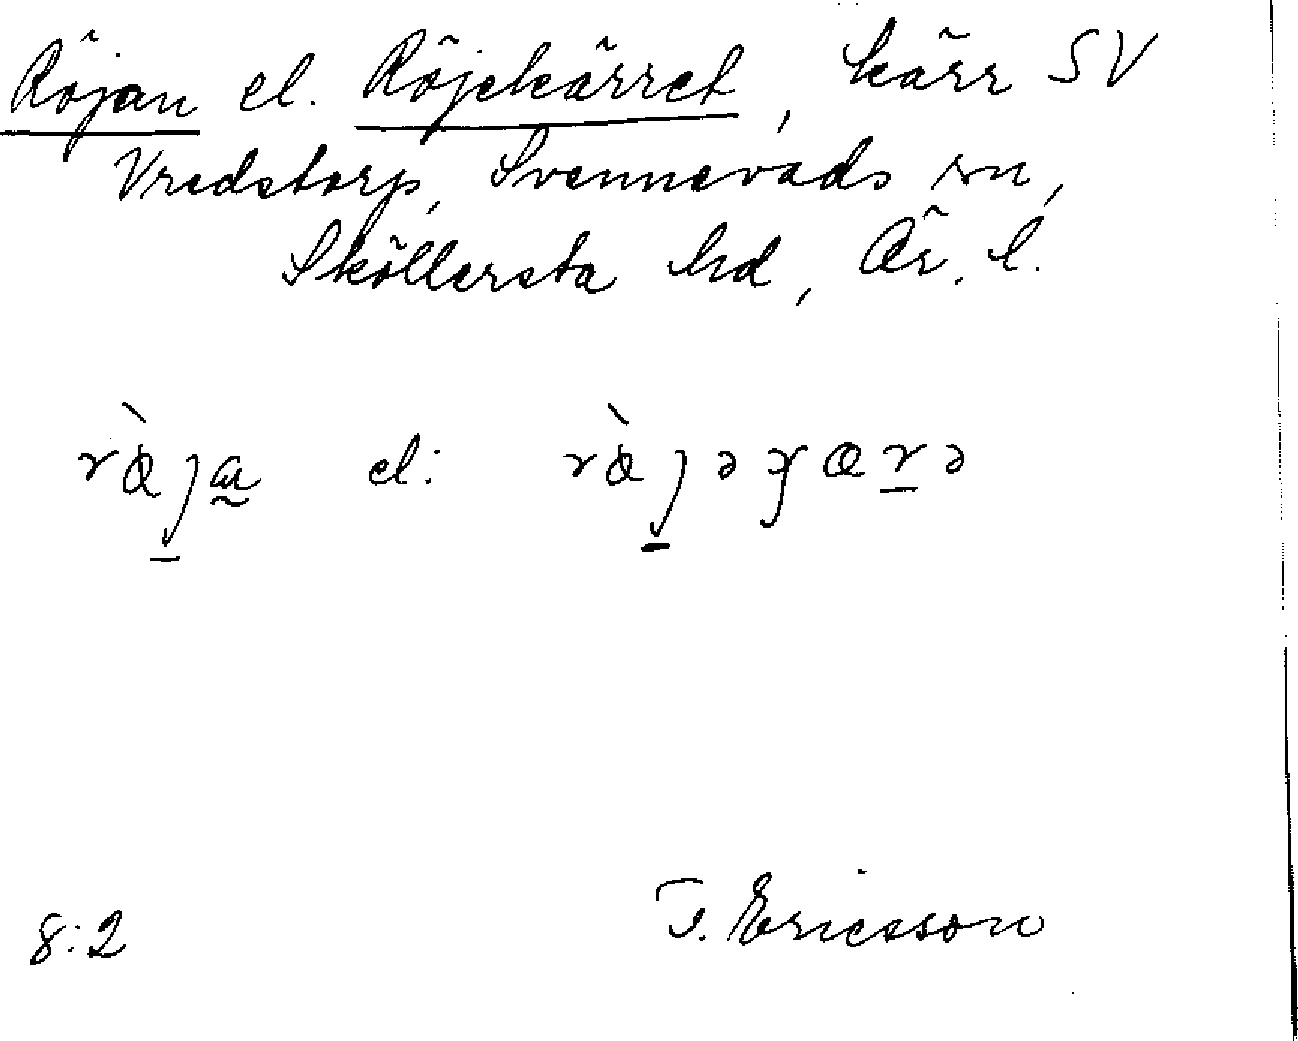 Röjan el. Röjekärret, kärr SV
Vredstorp, Svennevads sn,
Sköllersta hd, Ör. l.
el:
8:2 T. Ericsson